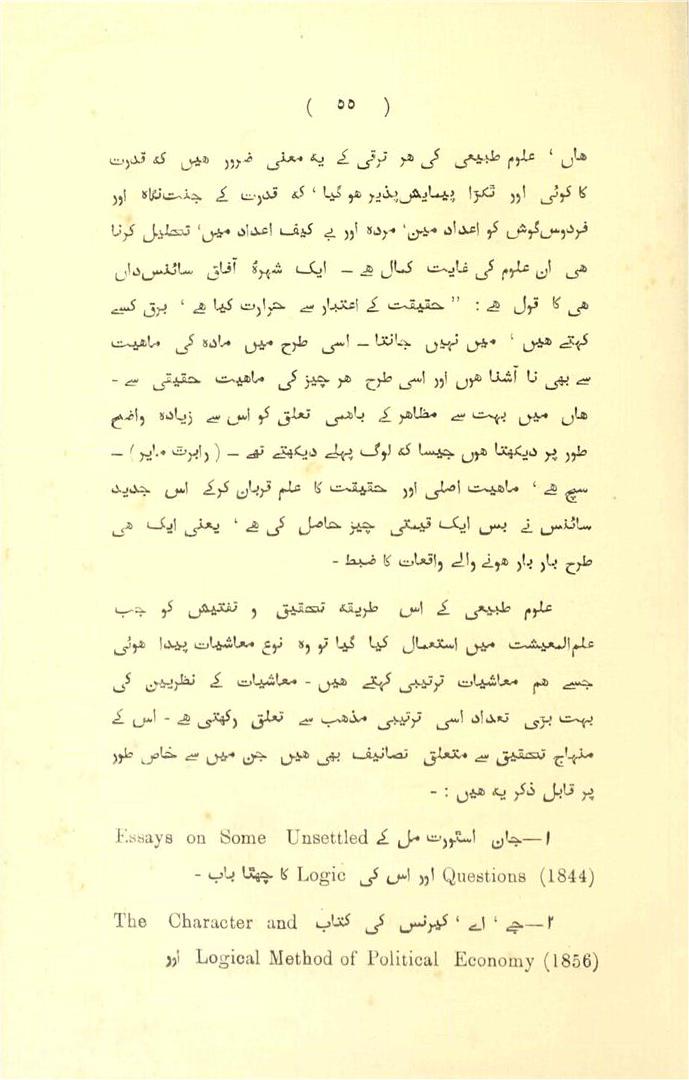 ( ۵۵ )
هاں ‘ علوم طبیعی کی هر ترقی کے یه معنی ضرور هیں که قدرت
کا کوئی اور ٹکڑا پیمایش‌پذیر هو گیا ‘ که قدرت کے جنت‌نگاه اور
فردوس‌گوش کو اعداد میں‘ مرده اور بے کیف اعداد میں‘ تحلیل کرنا
هی ان علوم کی غایت کمال هے ۔ ایک شهرۂ آفاق سائنس‌داں
هی کا قول هے : ” حقیقت کے اعتبار سے حرارت کیا هے ‘ برق کسے
کہتے هیں ‘ میں نہیں جانتا ۔ اسی طرح میں ماده کی ماهیت
سے بھی نا آشنا هوں اور اسی طرح هر چیز کی ماهیت حقیقی سے ۔
هاں میں بہت سے مظاهر کے باهمی تعلق کو اس سے زیاده واضح
طور پر دیکھتا هوں جیسا که لوگ پہلے دیکھتے تھے ۔ ( رابرٹ مایر) ۔
سچ هے ‘ ماهیت اصلی اور حقیقت کا علم قربان کرکے اس جدید
سائنس نے بس ایک قیمتی چیز حاصل کی هے ‘ یعنی ایک هی
طرح بار بار هونے والے واقعات کا ضبط ۔
علوم طبیعی کے اس طریقه تحقیق و تفتیش کو جب
علم‌المعیشت میں استعمال کیا گیا تو وه نوع معاشیات پیدا هوئی
جسے هم معاشیات ترتیبی کہتے هیں ۔ معاشیات کے نظریین کی
بہت بڑی تعداد اسی ترتیبی مذهب سے تعلق رکھتی هے ۔ اس کے
منهاج تحقیق سے متعلق تصانیف بھی هیں جن میں سے خاص طور
پر قابل ذکر یه هیں : ۔
۱—جان اسٹورٹ مل کے Essays on Some Unsettled
Questions (1844) اور اس کی Logic کا چھٹا باب ۔
۲—جے ‘ اے ‘ کیرنس کی کتاب The Character and
Logical Method of Political Economy (1856) اور